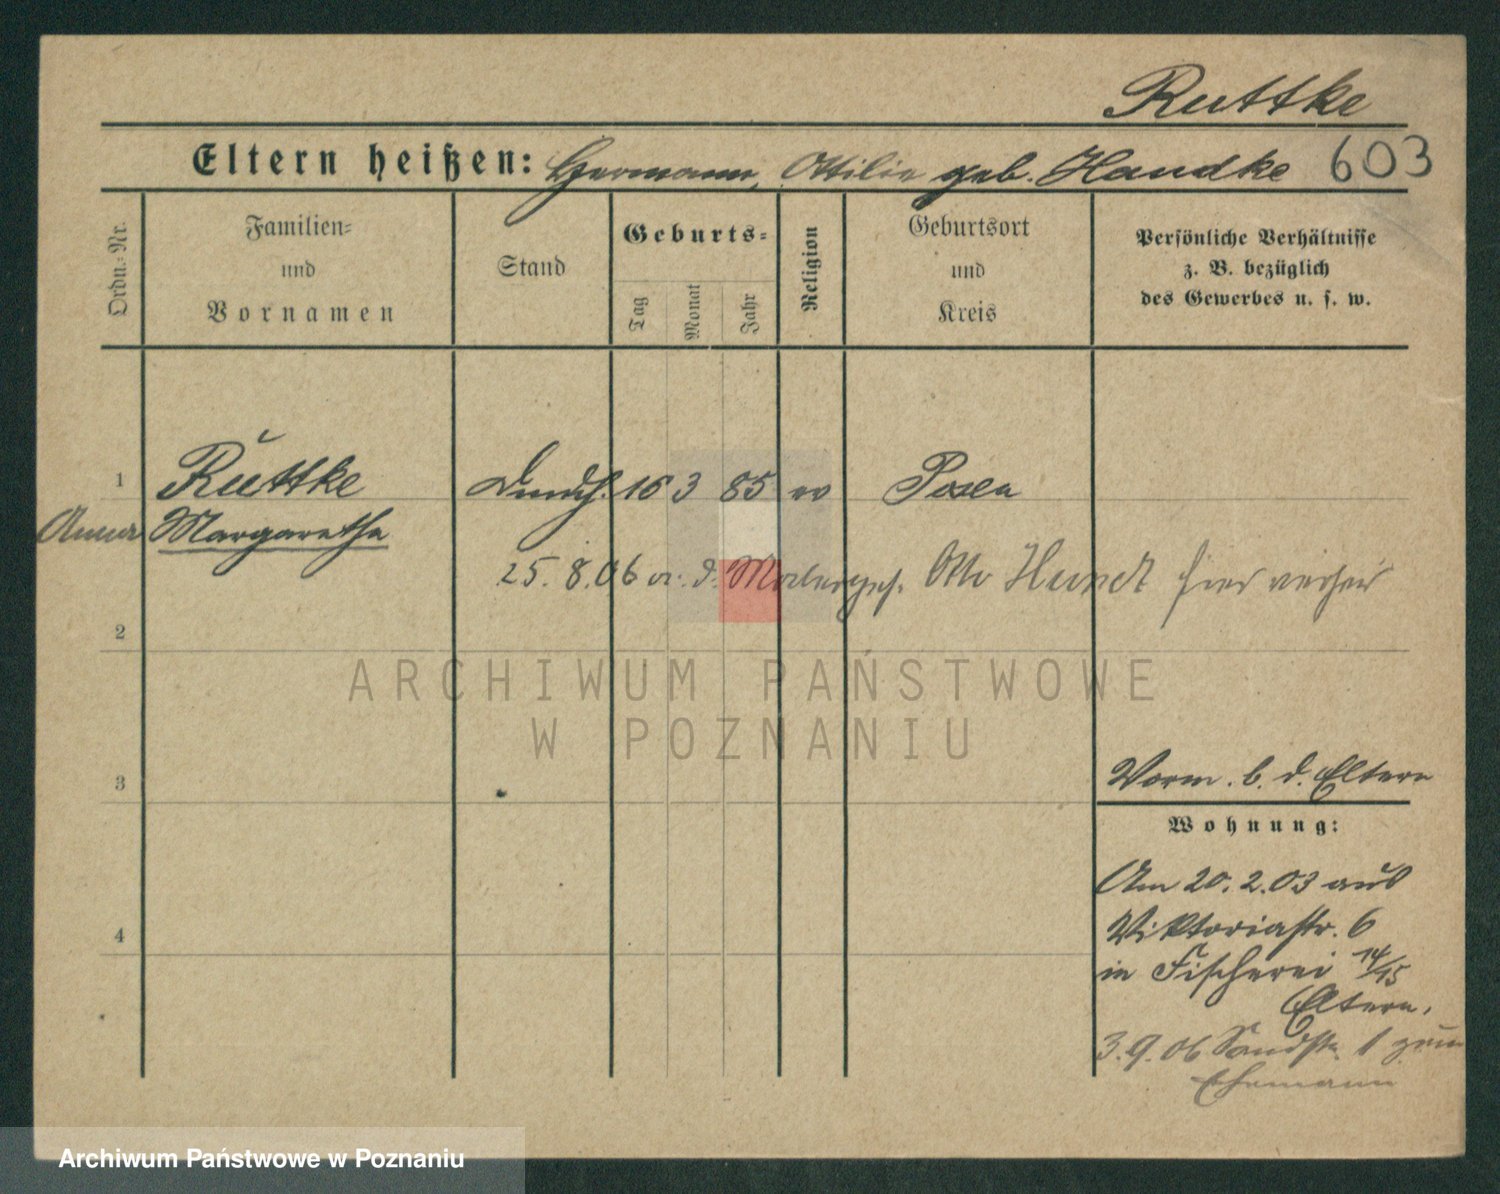 Ruttke
Eltern heißen: Hermann, Ottilie geb. Handke 603
Ordn.-Nr.
Familien-
und
Vornamen
Stand
Geburts-
Tag
Monat
Jahr
Religion
Geburtsort
und
Kreis
Persönliche Verhältnisse
z. B. bezüglich
des Gewerbes u. s. w.
1 Ruttke 16 3 85 ev Posen
Anna Margarethe
25.8.06 m. d. Otto Hundt hier verheir
2
ARCHIWUM PAŃSTWOWE
W POZNANIU
3
Vorm. b. d. Eltern
Wohnung:
Am 20.2.03 aus
Viktoriastr. 6
4
in Fischerei 14/15
Eltern.
3.9.06 Sandstr. 1 zum
Ehemann
Archiwum Państwowe w Poznaniu